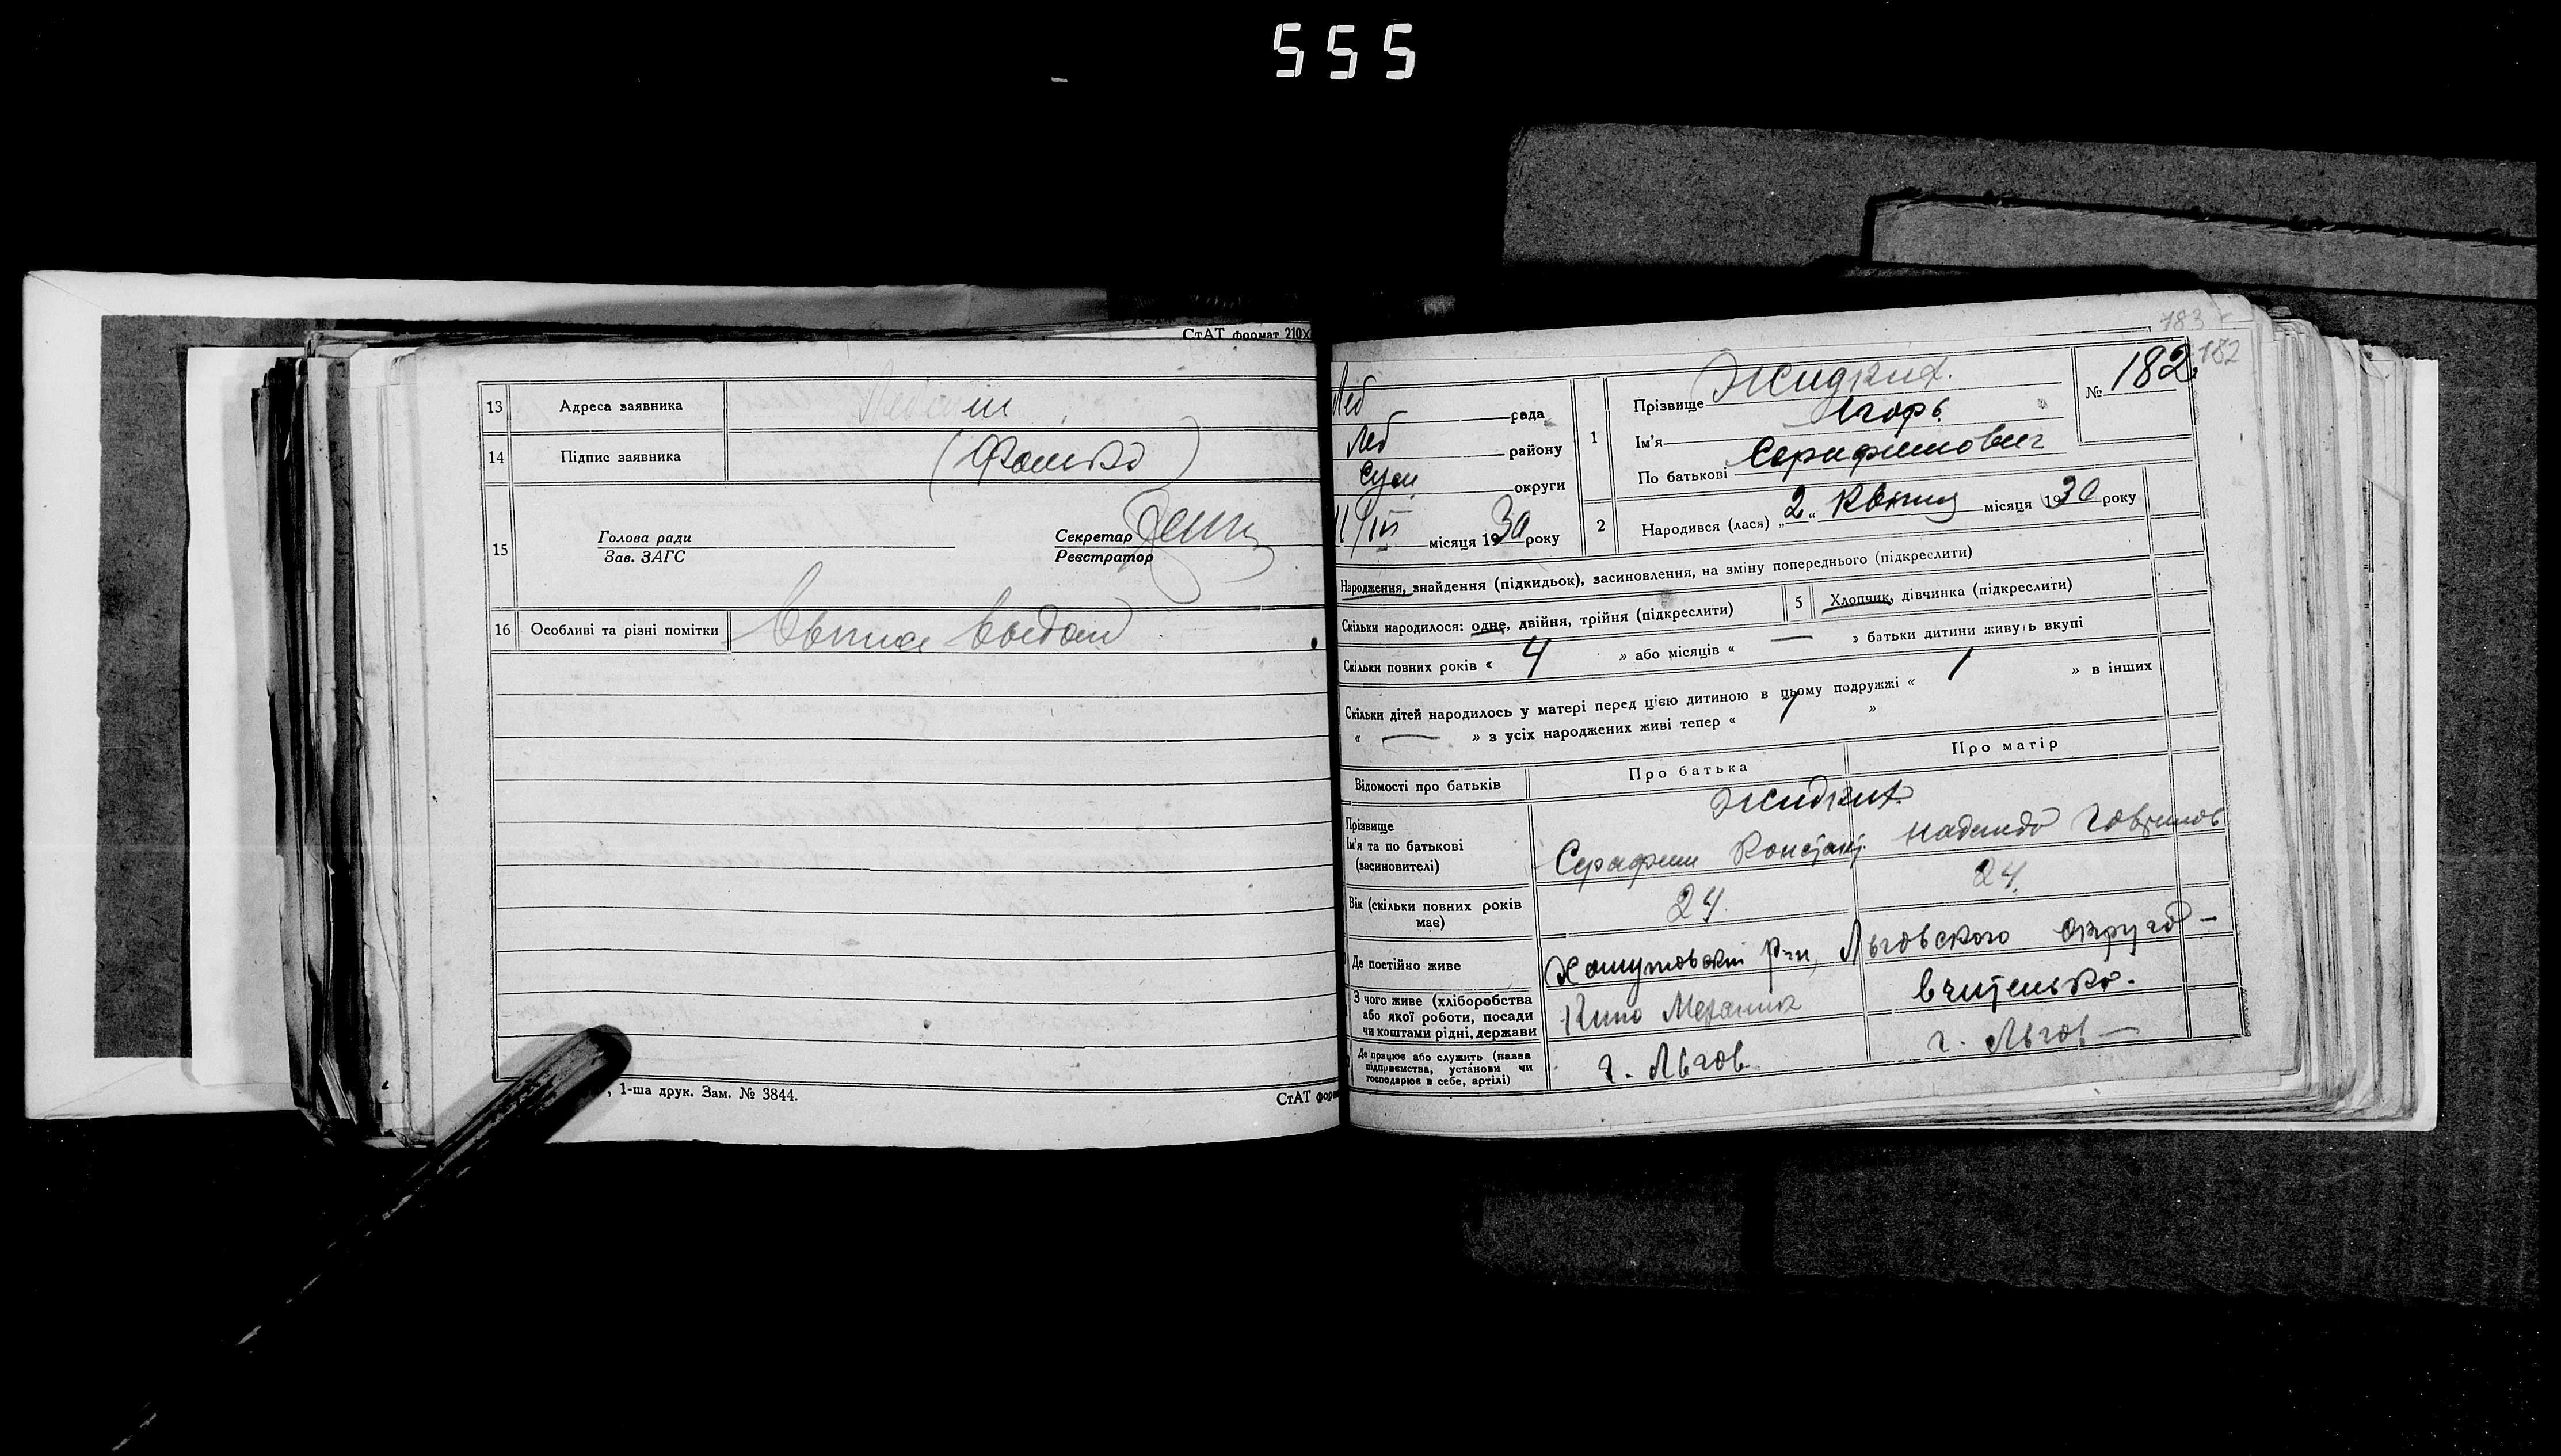 555
СтАТ формат 210X
13 Адреса заявника
14 Підпис заявника (Фомко)
15 Голова ради
Зав. ЗАГС
Секретар
Реєстратор
16 Особливі та різні помітки
, 1-ша друк. Зам. № 3844.
СтАТ форм
183
182
№ 182.
Леб рада
Леб району
Сум округи
місяця 1930 року
1 Прізвище Жидких.
Ім'я Ігорь
По батькові Серафимович
2 Народився (лася) „2“ Квітня місяця 1930 року
Народження, знайдення (підкидьок), засиновлення, на зміну попереднього (підкреслити)
Скільки народилося: одне, двійня, трійня (підкреслити)
5 Хлопчик, дівчинка (підкреслити)
Скільки повних років « 4 » або місяців « — » батьки дитини живуть вкупі
Скільки дітей народилось у матері перед цією дитиною в цьому подружжі « 1 » в інших
« — » з усіх народжених живі тепер « 1 »
Відомості про батьків Про батька Про матір
Прізвище Жидких
Ім'я та по батькові
(засиновителі)
Серафим Констант. Надежда Гаврилов
Вік (скільки повних років має) 24. 24.
Де постійно живе Хомутовский р-н, Льговского округа —
З чого живе (хліборобства
або якої роботи, посади
чи коштами рідні, держави
Кино Механик вчителька.
Де працює або служить (назва
підприємства, установи чи
господарює в себе, артілі)
г. Льгов. г. Льгов —